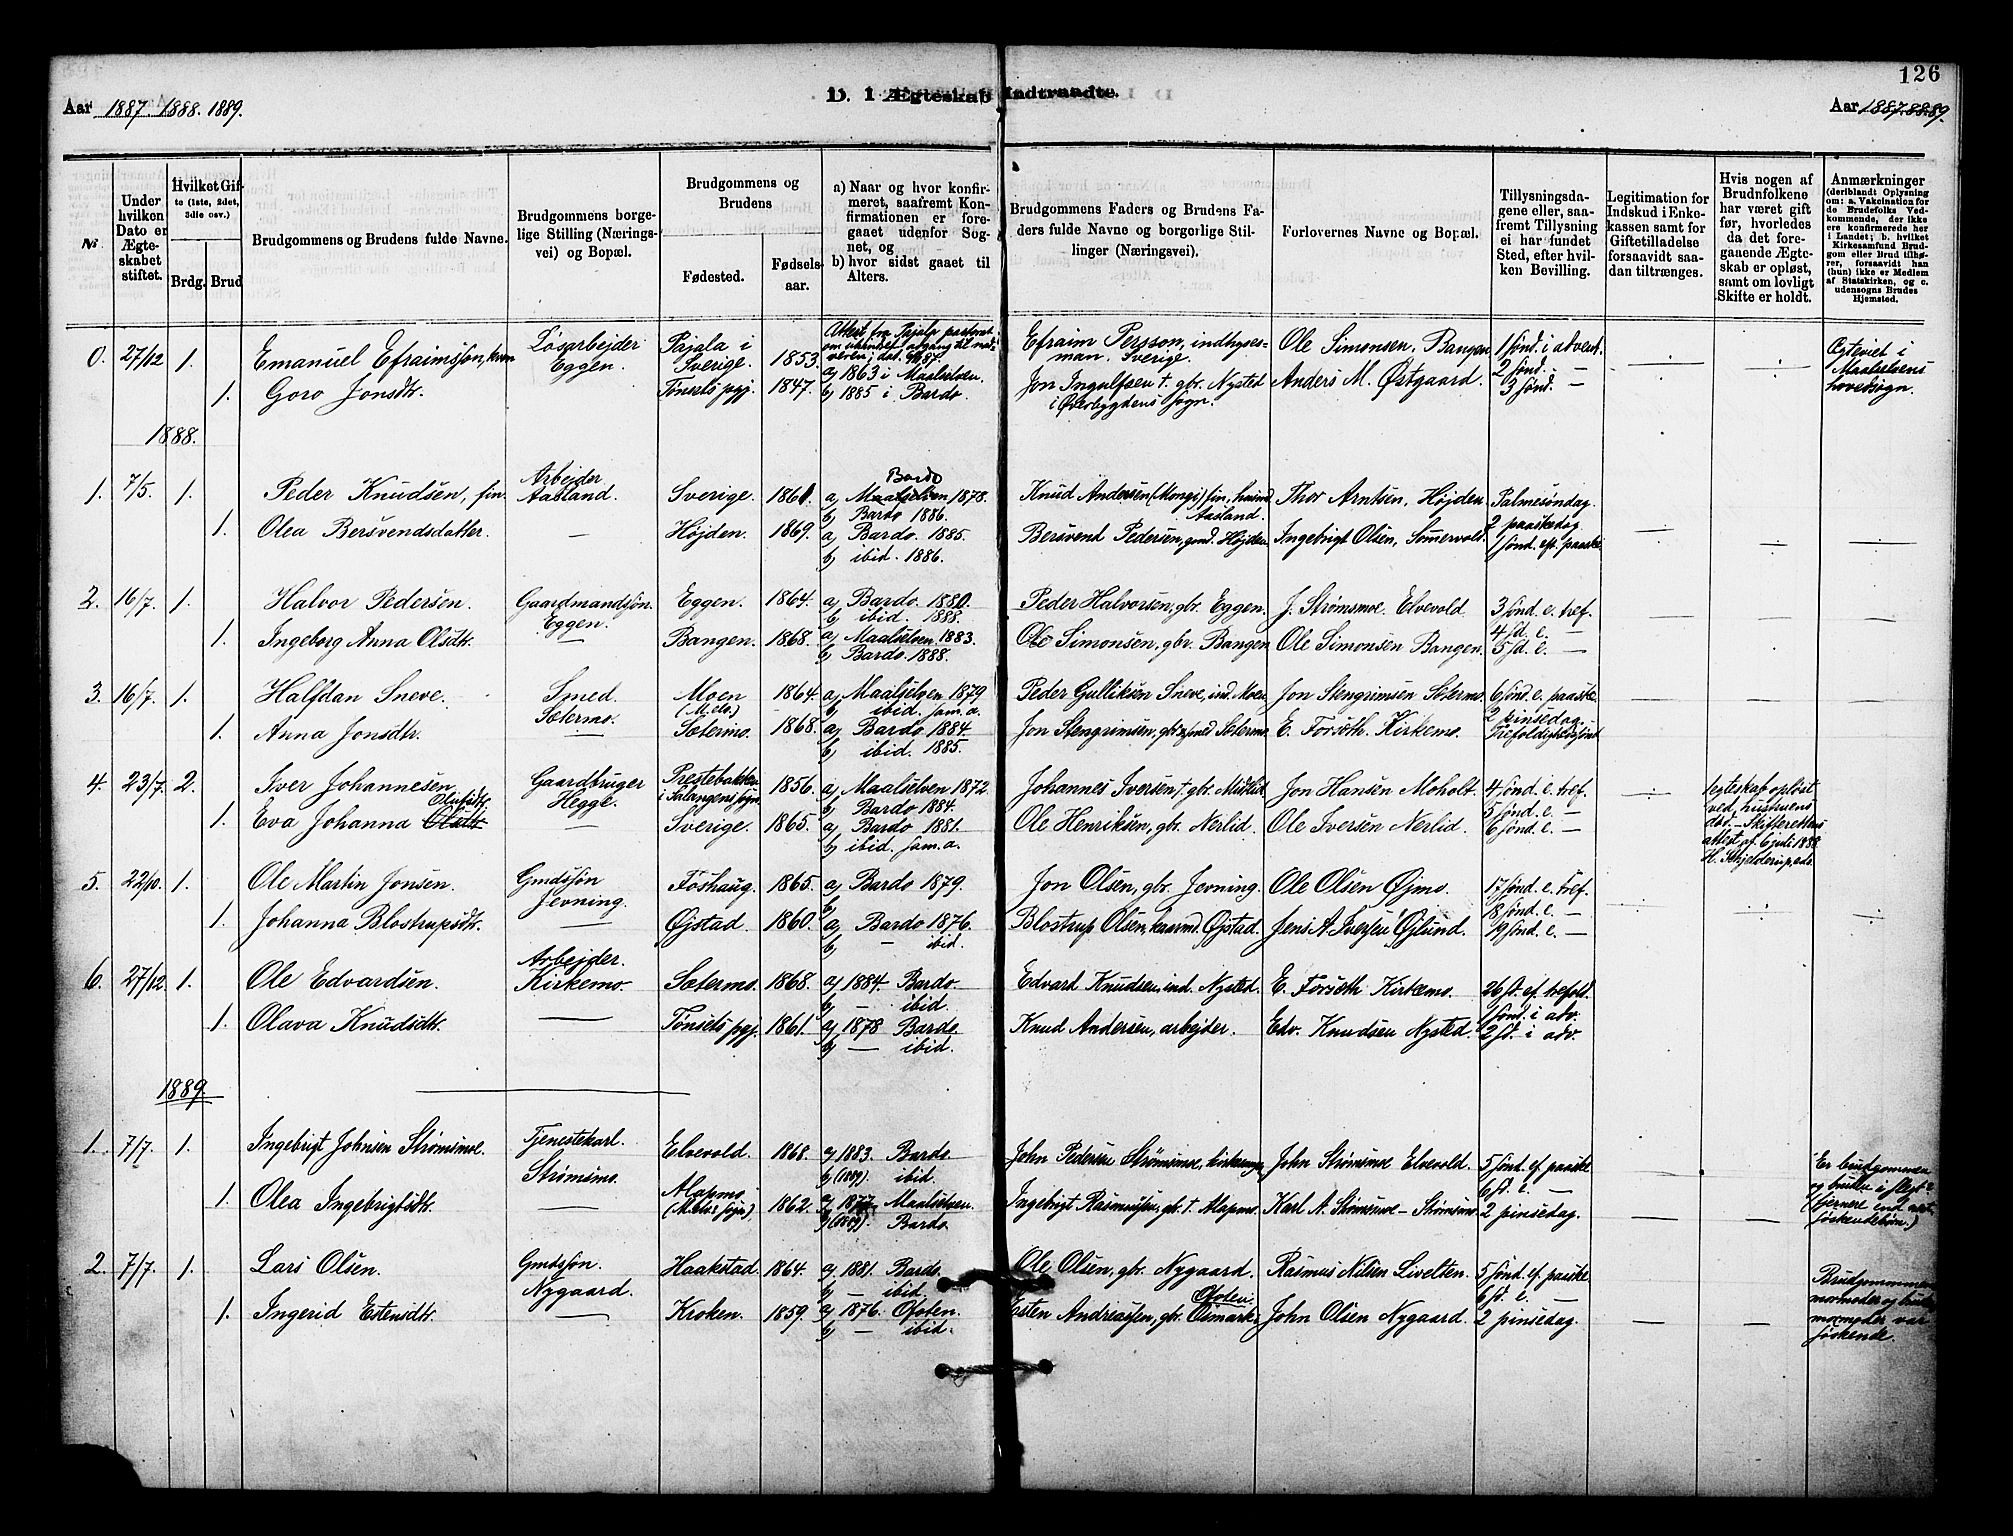 126
Aar 1887. 1888. 1889.
D. I Ægteskab Indtraadte.
Aar 1887.88.89.
№
Under hvilken Dato er Ægteskabet stiftet.
Hvilket Gifte (1ste, 2det, 3die osv.)
Brdg.
Brud
Brudgommens og Brudens fulde Navne.
Brudgommens borgelige Stilling (Næringsvei) og Bopæl.
Brudgommens og Brudens
Fødested.
Fødselsaar.
a) Naar og hvor konfirmeret, saafremt Konfirmationen er foregaaet udenfor Sognet, og
b) hvor sidst gaaet til Alters.
Brudgommens Faders og Brudens Faders fulde Navne og borgerlige Stillinger (Næringsvei).
Forlovernes Navne og Bopæl.
Tillysningsdagene eller, saafremt Tillysning ei har fundet Sted, efter hvilken Bevilling.
Legitimation for Indskud i Enkekassen samt for Giftetilladelse forsaavidt saadan tiltrænges.
Hvis nogen af Brudnfolkene har været gift før, hvorledes da det foregaaende Ægteskab er opløst, samt om lovligt Skifte er holdt.
Anmærkninger (deriblandt Oplysning om: a. Vakcination for de Brudefolks Vedkommende, der ikke ere konfirmerede her i Landet; b. hvilket Kirkesamfund Brudgom eller Brud tilhører, forsaavidt han (hun) ikke er Medlem af Statskirken, og c. udensogns Brudes Hjemsted.
0. 27/12 1. Emanuel Efraimssøn, kven Løsarbejder Eggen. Pajala i Sverige. 1853. Attest fra Pajala pastorat om uhindret adgang til nadveren, dat. 87. Efraim Persson, indhysesman. Sverige. Ole Simonsen, Bangen 1 sønd. i advent. 2 sønd. — Ægteviet i Maalselvens hovedsogn.
1. Goro Jonsdtr. Tønsets pgj. 1847. a) 1863 i Maalselven. b) 1885 i Bardo. Jon Ingulfsen †. gbr. Nysted i Øverbygdens sogn. Anders M. Østgaard. 3 sønd.
1888.
1. 7/5. 1. Peder Knudsen, fin. Arbejder Aasland. Sverige. 1861. a) Maalselven Bardo 1878. b) Bardo 1886. Knud Andersen (Mongi) fin, husmd. Aasland. Thor Arntsen, Højden. Palmesøndag. 2 paaskedag.
1. Olea Bersvendsdatter. — Højden. 1869. a) Bardo. 1885. b) ibid. 1886. Bersvend Pedersen, gmd. Højden. Ingebrigt Olsen, Sømervold. 1 sønd. eft. paaske.
2. 16/7. 1. Halvor Pedersen. Gaardmandssøn. Eggen. Eggen. 1864. a) Bardo. 1880. b) ibid. 1888. Peder Halvorsen, gbr. Eggen. J. Strømsmoe. Elvevold 3 sønd. e. tref.
1. Ingeborg Anna Olsdtr. — Bangen. 1868. a) Maalselven 1883. b) Bardo. 1888. Ole Simonsen, gbr. Bangen Ole Simonsen Bangen. 4 sd. e. — 5 sd. e. —
3. 16/7. 1. Halfdan Sneve. Smed Sætermo. Moen (M.elv.) 1864. a) Maalselven 1879 b) ibid. sam. a. Peder Gulliksen Sneve, ind. Moen Jon Stengrimsen Sætermo. 6 sønd. e. paaske 2 pinsedag.
1. Anna Jonsdtr. — Sætermo. 1868. a) Bardo 1884. b) ibid. 1885. Jon Stengrimsen, gbr. smed Sætermo. E. Forseth. Kirkemo. Trefoldighedssønd
4. 23/7. 2. Iver Johannesen. Gaardbruger Hegge. Prestebakken i Salangens sogn 1856. a) Maalselven 1872. b) Bardo 1884. Johannes Iversen † gbr. Midtlid. Jon Hansen Moholt. 4 sønd. e. tref. 5 sønd. e. — Ægteskap opløst ved hustruens død. — Skifterettens attest af 6 juli 1888. H. Schjelderup, edo.
1. Eva Johanna Olsdtr. Olufsdtr. — Sverige. 1865. a) Bardo 1881. b) ibid. sam. a. Ole Henriksen, gbr. Nerlid. Ole Iversen Nerlid. 6 sønd. e. —
5. 22/10. 1. Ole Martin Jonsen. Gmdssøn Jevning. Fosshaug. 1865. a) Bardo 1879. b) Jon Olsen, gbr. Jevning. Ole Olsen Øjmo. 17 sønd. e. tref. 18 sønd. e. —
1. Johanna Blostrupsdtr. — Øjstad. 1860. a) Bardo 1876. b) — ibid. Blostrup Olsen, kaarmd. Øjstad. Jens A. Iversen Øjlund. 19 sønd. e. —
6. 27/12. 1. Ole Edvardsen. Arbejder. Kirkemo. Sætermo. 1868. a) 1884. Bardo. b) — ibid. Edvard Knudsen, ind. Nysted. E. Forseth Kirkemo. 26 sd. ef. trefold. 1 sønd. i adv.
1. Olava Knudsdtr. — Tønsets pgj. 1861. a) 1878 Bardo. b) — ibid. Knud Andersen, arbejder. Edv. Knudsen Nysted. 2 sd. i adv.
1889.
1. 7/7. 1. Ingebrigt Johnsen Strømsmoe. Tjenestekarl. Strømsmo. Elvevold. 1868. a) 1883. Bardo b) (1889). ibid. John Pedersen Strømsmoe, kirkesanger John Strømsmoe Elvevold. 5 sønd. ef. paaske 6 sd. e. — Er brudgommen og bruden i slegt? (fjernere end net-søskendebørn.)
1. Olea Ingebrigtsdtr. — Alapmo (Målselvs sogn). 1862. a) 1877. Maalselven. b) (1889). Bardo. Ingebrigt Rasmussen, gbr. † Alapmo. Karl A. Strømsmoe — Strømsmo 2 pinsedag.
2. 7/7. 1. Lars Olsen. Gmdssøn. Nygaard. Haakstad. 1864. a) 1881. Bardo. b) — ibid. Ole Olsen, gbr. Nygaard. Rasmus Nilsen Livelten. 5 sønd. ef. paaske 6 sd. e. — Brudgommens mormoder og brudens mormoder var søskende.
1. Ingerid Estensdtr. — Kroken. 1859. a) 1876. Ofoten. b) — ibid. Esten Andreassen, gbr. Osmark, Ofoten. John Olsen Nygaard. 2 pinsedag.